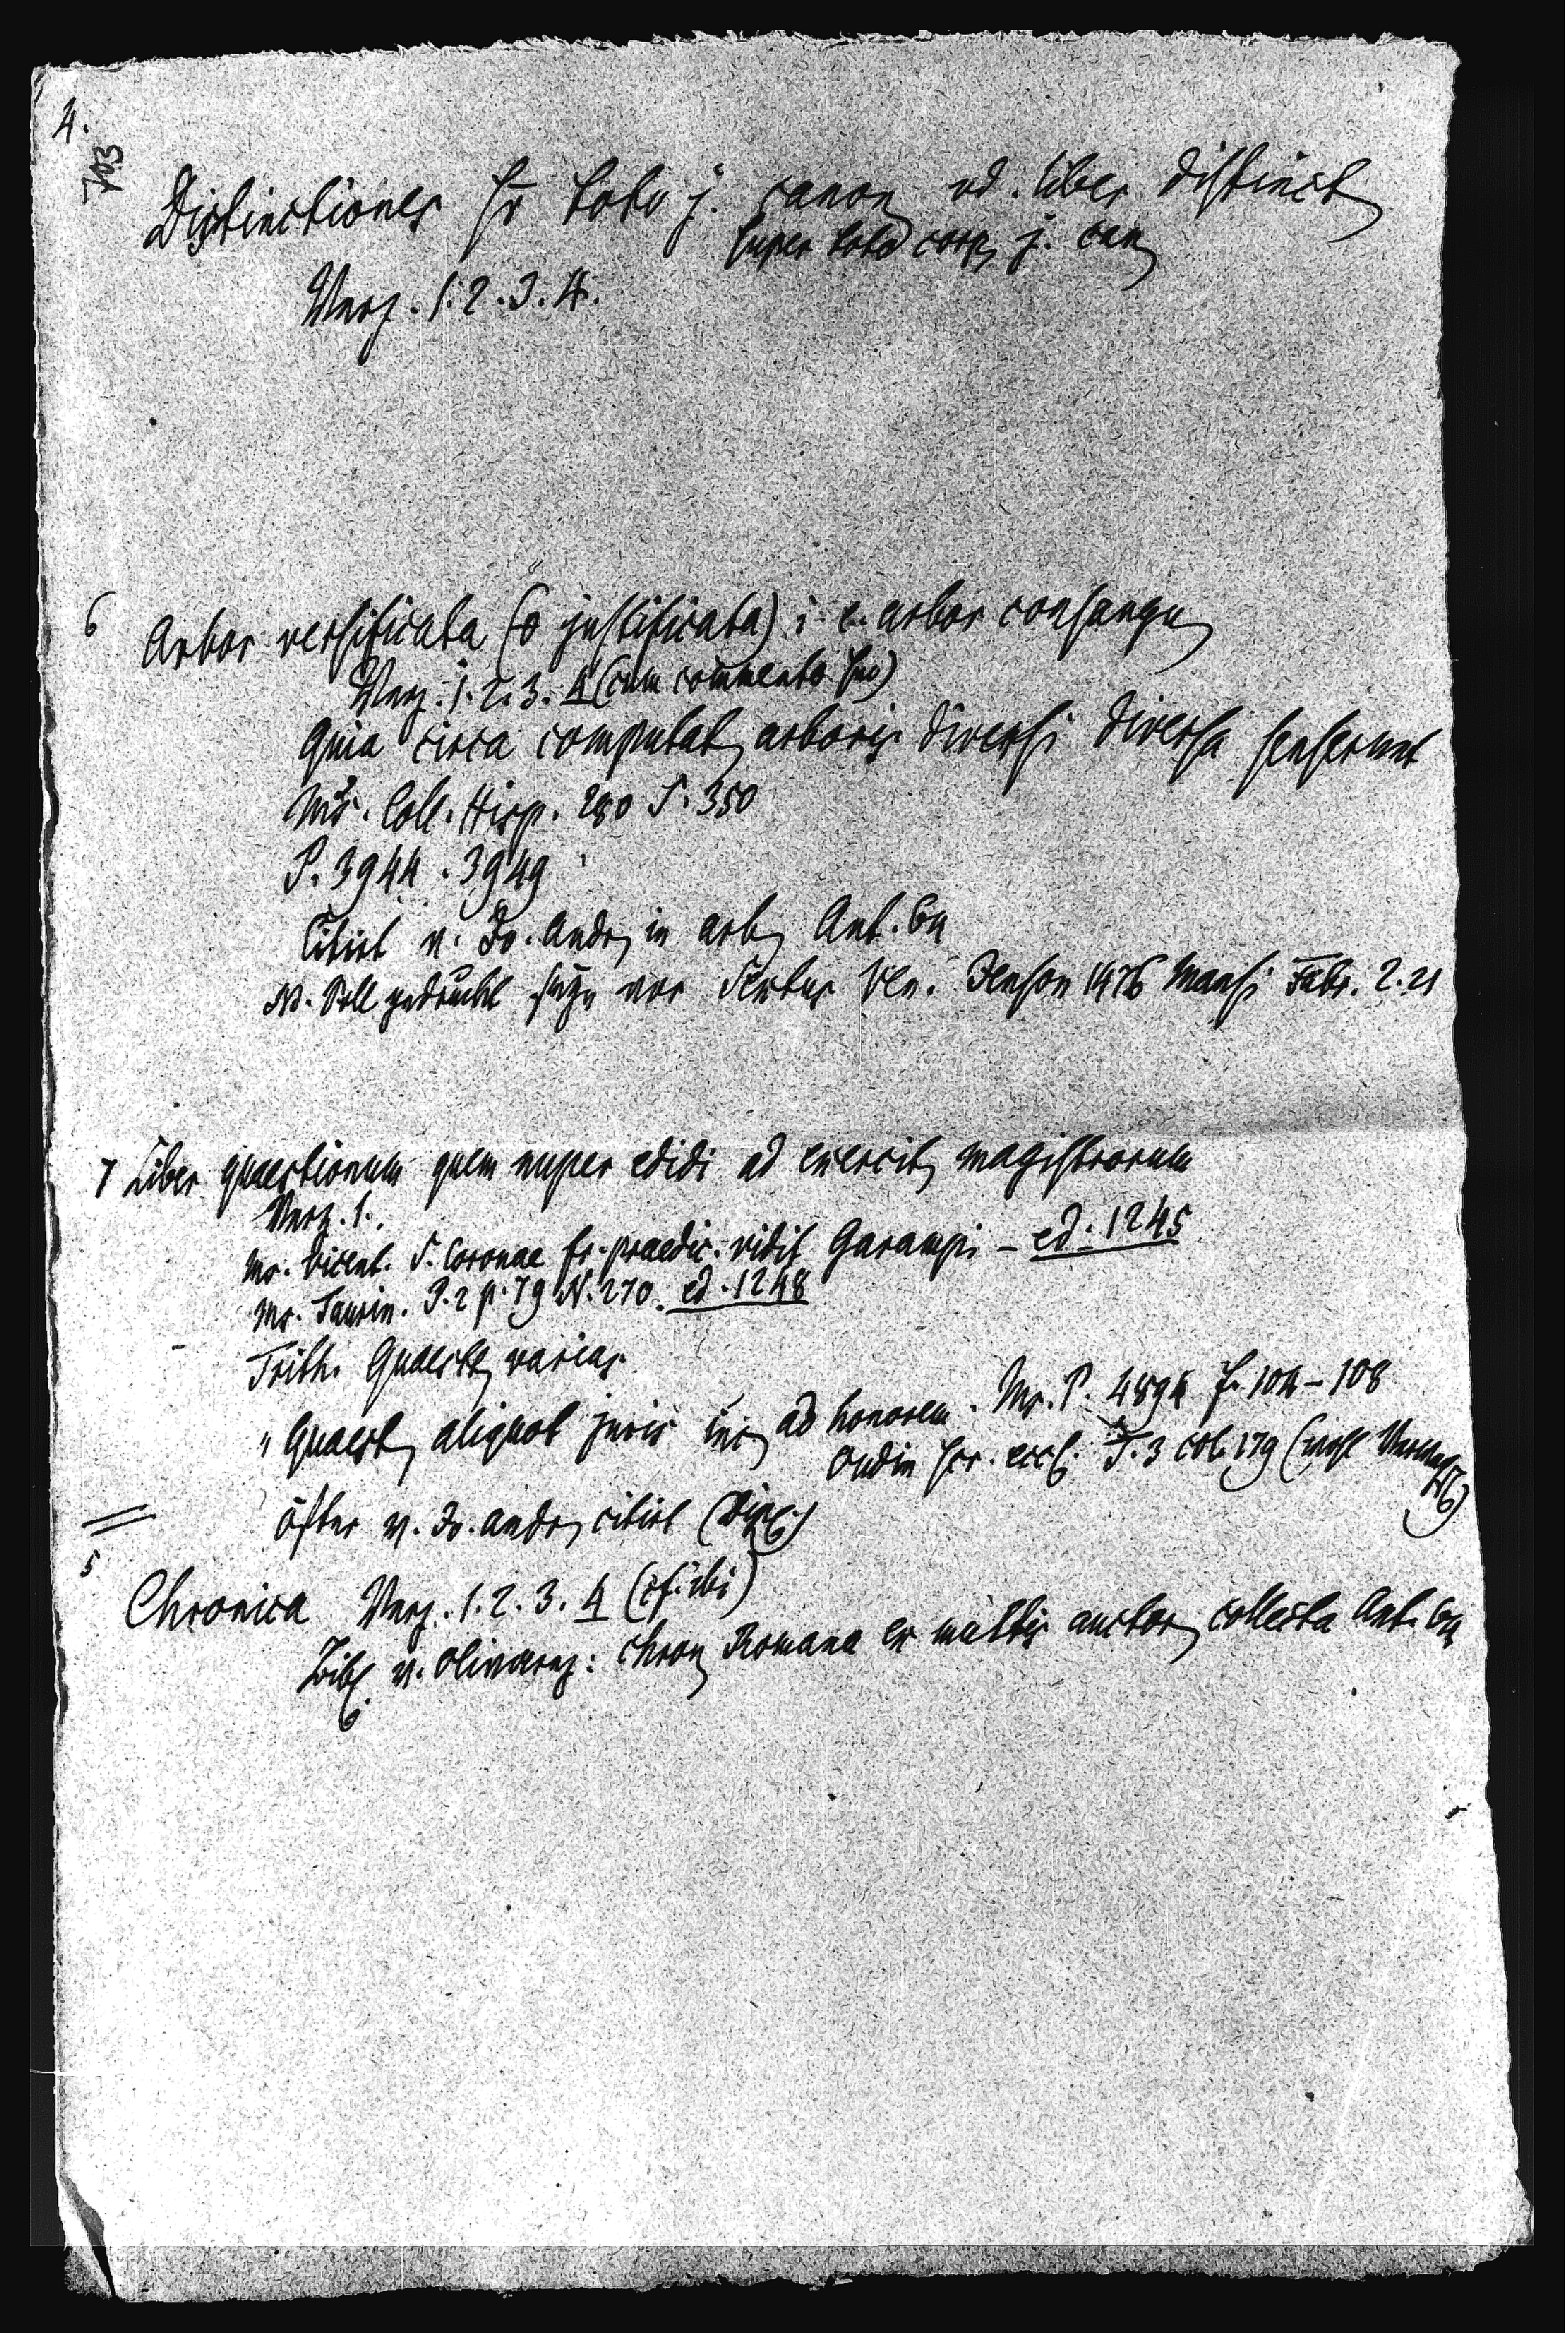 4.
Distinctiones sr toto j. canon od. liber distinct
super toto corp j. can
Verz. 1. 2. 3. 4.
6 Arbor versificata (o justificata) i. e. arbor consangu
Verz. 1. 2. 3. 4 (cum commento suo)
Quia circa computat arboris diversi diversa senserunt
Ms. Coll. Hisp. 280 S. 350
P. 3944. 3949
Citirt v. Jo. Andr in arb Ant. Con
N. Soll gedruckt seyn vor Sextus Ven. Jenson 1476 Mansi Fabr. 2. 21
7 Liber quaestionum quem nuper edidi ad exercit magistrorum
Verz. 1.
Ms. Vicent. S. Coronae fr. praedic. vidit Garampi - ed. 1245
Ms. Taurin. P. 2 p. 79 N. 270. ed. 1248
Trith. Quaest varias
" Quaest aliquot juris inc ad honorem. Ms. P. 4894 f. 104-108
Oudin scr. eccl. T. 3 col. 179
öfter v. Jo. Andr citirt
5
Chronica Verz. 1. 2. 3. 4
v. Olivarez: Chron Romana ex multis auctor collecta Ant.